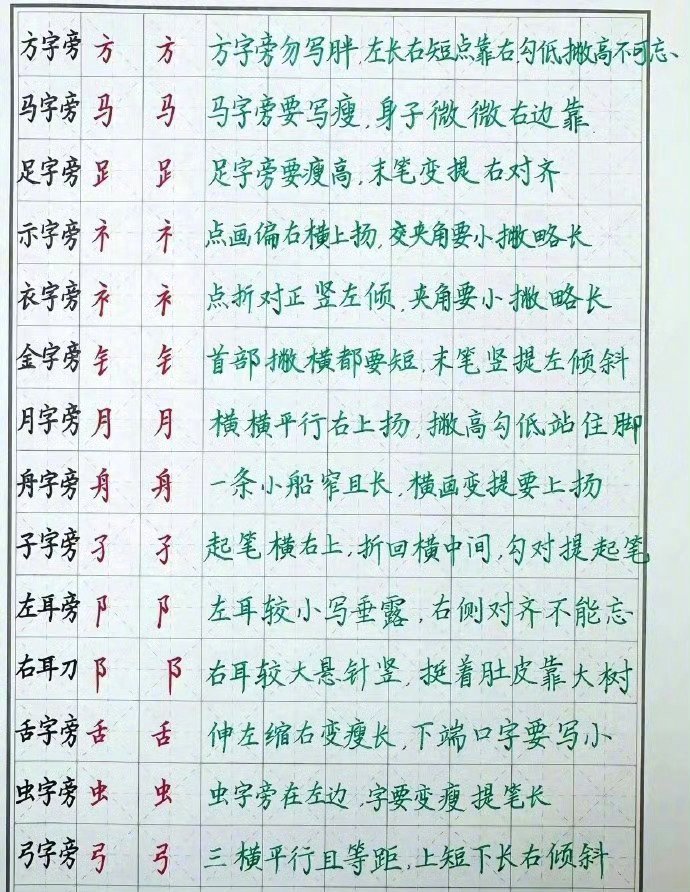 方字旁 方 方 方字旁勿写胖,左长右短点靠右,勾低撇高不可忘、
马字旁 马 马 马字旁要写瘦,身子微微右边靠.
足字旁 𧾷 𧾷 足字旁要瘦高,末笔变提右对齐
示字旁 礻 礻 点画偏右横上扬,交夹角要小撇略长
衣字旁 衤 衤 点折对正竖左倾,夹角要小撇略长
金字旁 钅 钅 首部撇横都要短,末笔竖提左倾斜
月字旁 月 月 横横平行右上扬,撇高勾低站住脚
舟字旁 舟 舟 一条小船窄且长,横画变提要上扬
子字旁 孑 孑 起笔横右上,折回横中间,勾对提起笔
左耳旁 阝 阝 左耳较小写垂露,右侧对齐不能忘
右耳刀 阝 阝 右耳较大悬针竖,挺着肚皮靠大树
舌字旁 舌 舌 伸左缩右变瘦长,下端口字要写小
虫字旁 虫 虫 虫字旁在左边,字要变瘦提笔长
弓字旁 弓 弓 三横平行且等距,上短下长右倾斜